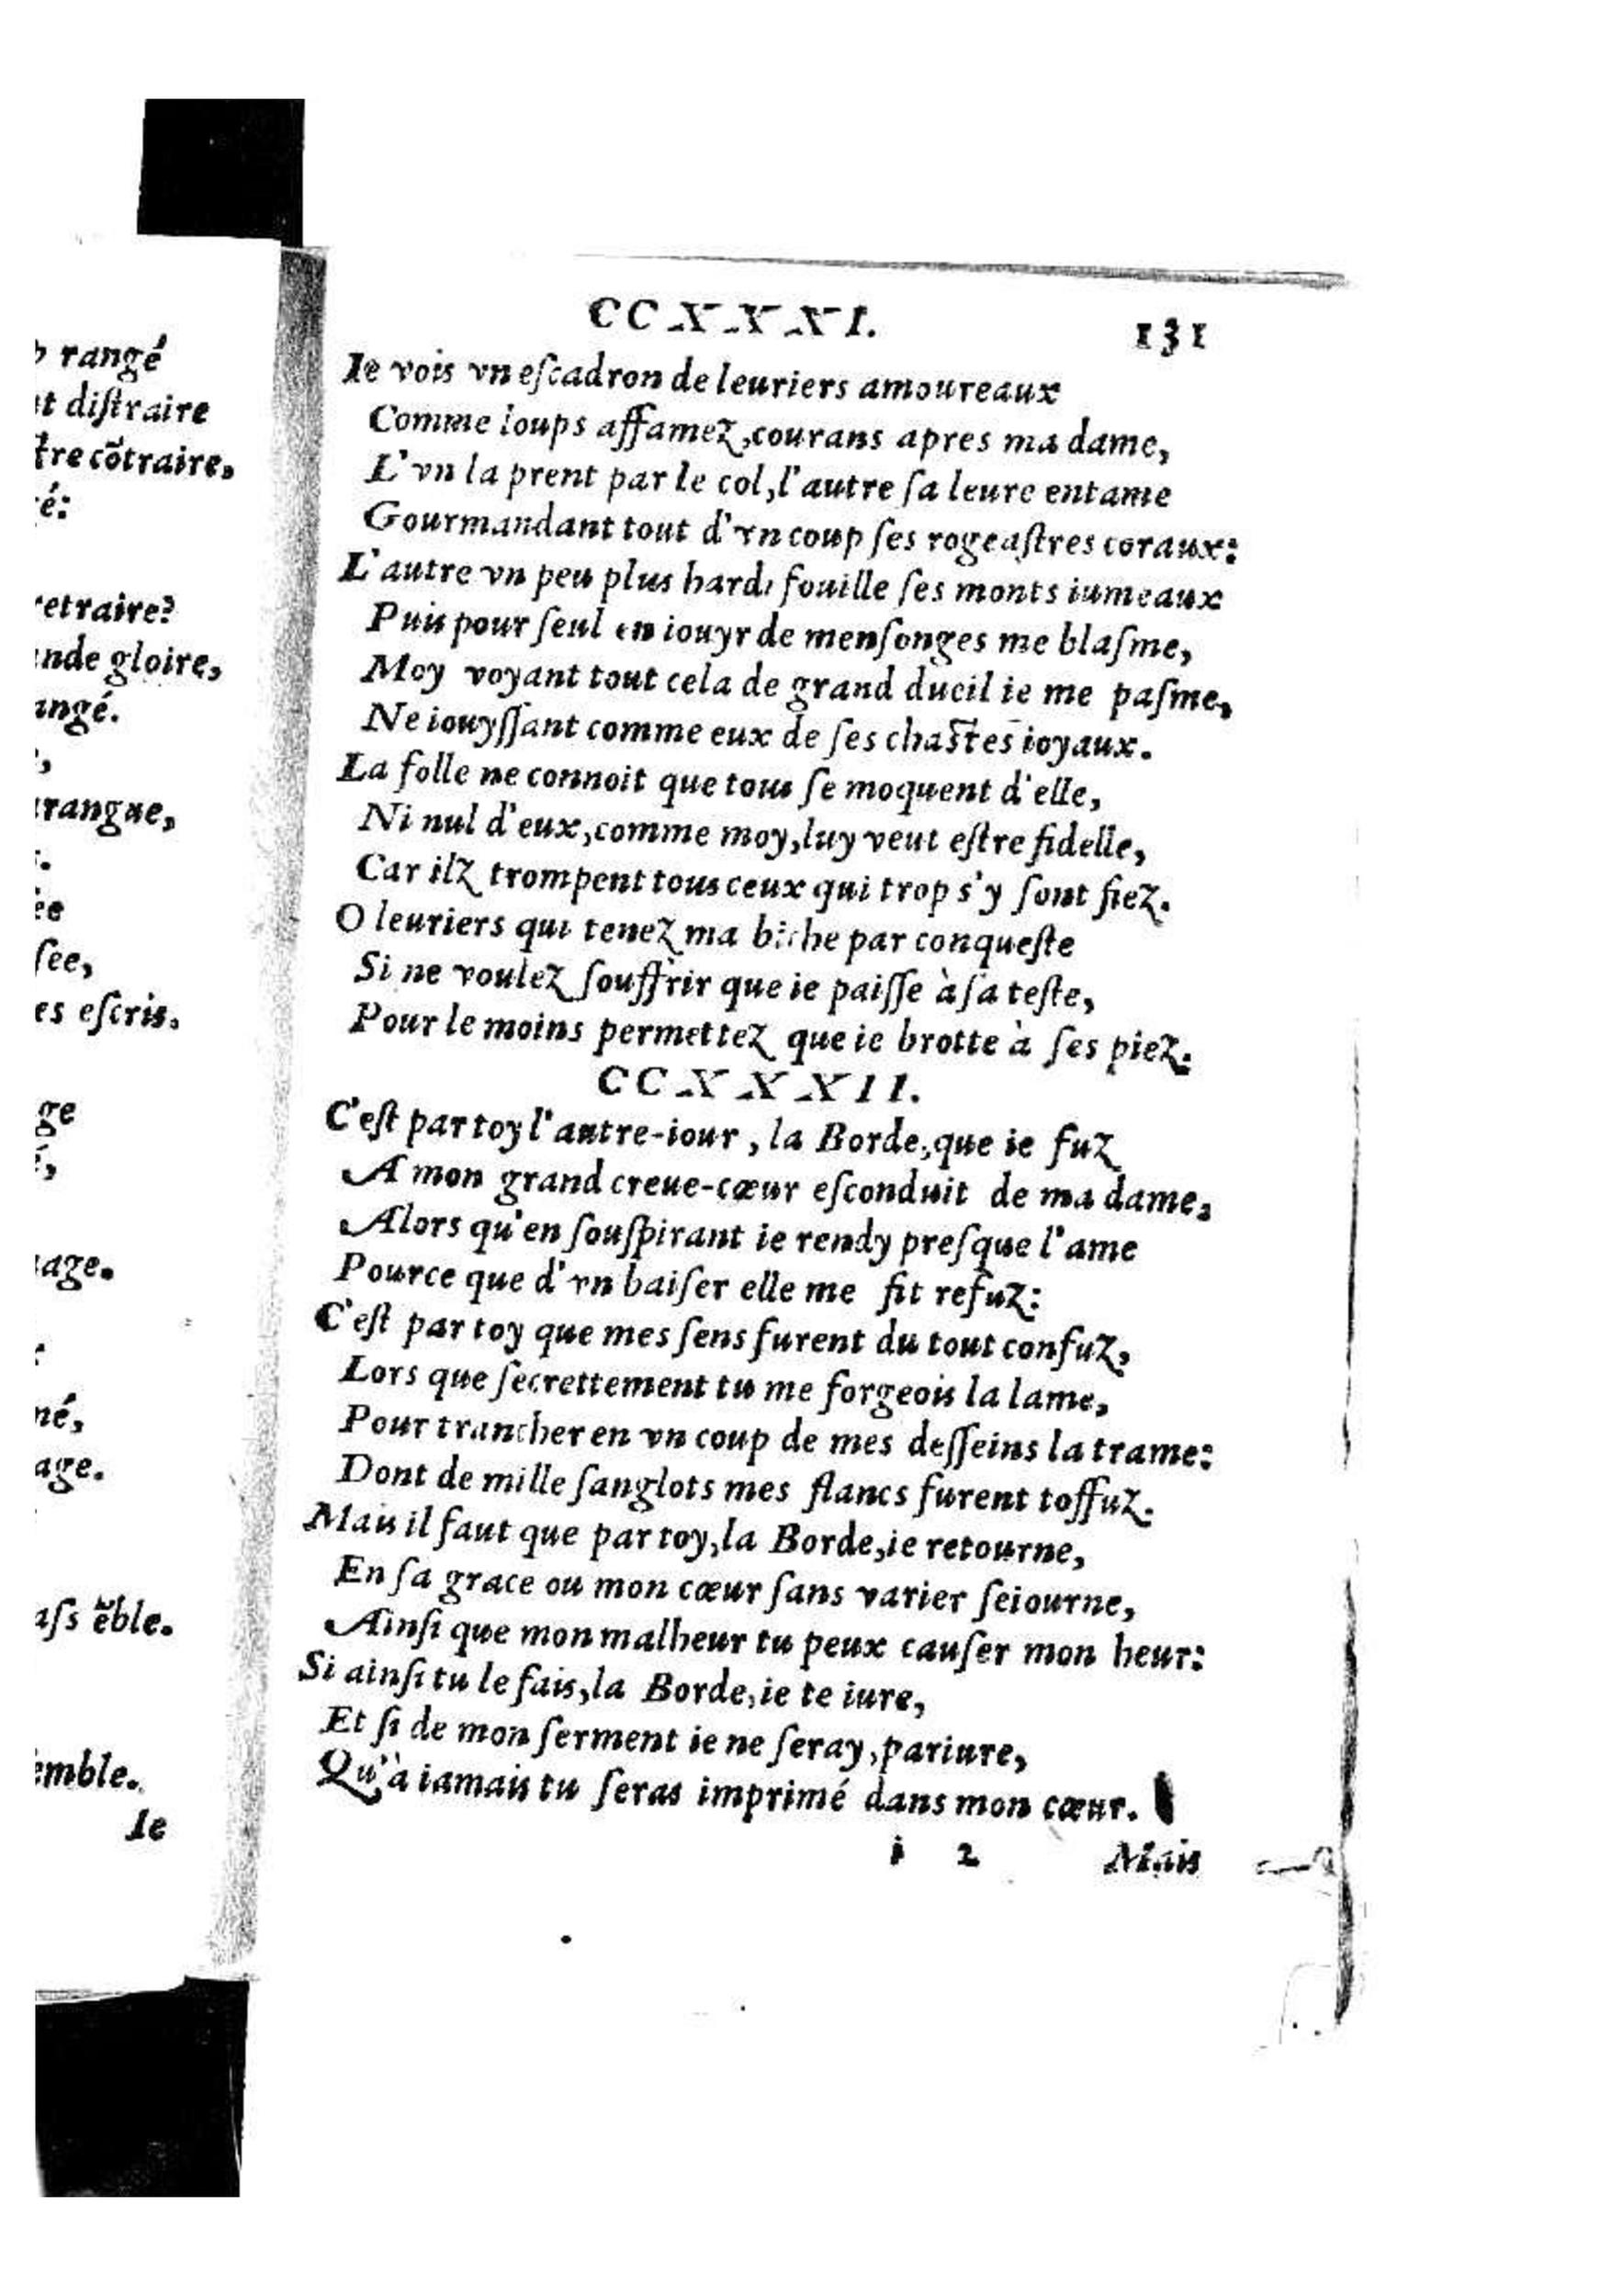 ꝺ rangé
t diſtraire
ſtre cõtraire,
é:
retraire?
nde gloire,
angé.
,
rangue,
.
ée
ſee,
es eſcris.
ge
é,
age.
r
né,
age.
aſs ẽble.
emble.
Ie
CCXXXI.
131
Ie vois vn eſcadron de leuriers amoureaux
Comme loups affamez, courans apres ma dame,
L'vn la prent par le col, l'autre ſa leure entame
Gourmandant tout d'vn coup ſes rogeaſtres coraux:
L'autre vn peu plus hardi fouille ſes monts iumeaux
Puis pour ſeul en iouyr de menſonges me blaſme,
Moy voyant tout cela de grand dueil ie me paſme,
Ne iouyſſant comme eux de ſes chaſtes ioyaux.
La folle ne connoit que tous ſe moquent d'elle,
Ni nul d'eux, comme moy, luy veut eſtre fidelle,
Car ilz trompent tous ceux qui trop s'y ſont fiez.
O leuriers qui tenez ma biche par conqueſte
Si ne voulez ſouffrir que ie paiſſe à ſa teſte,
Pour le moins permettez que ie brotte à ſes piez.
CCXXXII.
C'eſt par toy l'autre-iour, la Borde, que ie fuz
A mon grand creue-cœur eſconduit de ma dame,
Alors qu'en ſouſpirant ie rendy preſque l'ame
Pource que d'vn baiſer elle me fit refuz:
C'eſt par toy que mes ſens furent du tout confuz,
Lors que ſecrettement tu me forgeois la lame,
Pour trancher en vn coup de mes deſſeins la trame:
Dont de mille ſanglots mes flancs furent toffuz.
Mais il faut que par toy, la Borde, ie retourne,
En ſa grace ou mon cœur ſans varier ſeiourne,
Ainſi que mon malheur tu peux cauſer mon heur:
Si ainſi tu le fais, la Borde, ie te iure,
Et ſi de mon ſerment ie ne ſeray, pariure,
Qu'à iamais tu ſeras imprimé dans mon cœur.
i 2
Mais